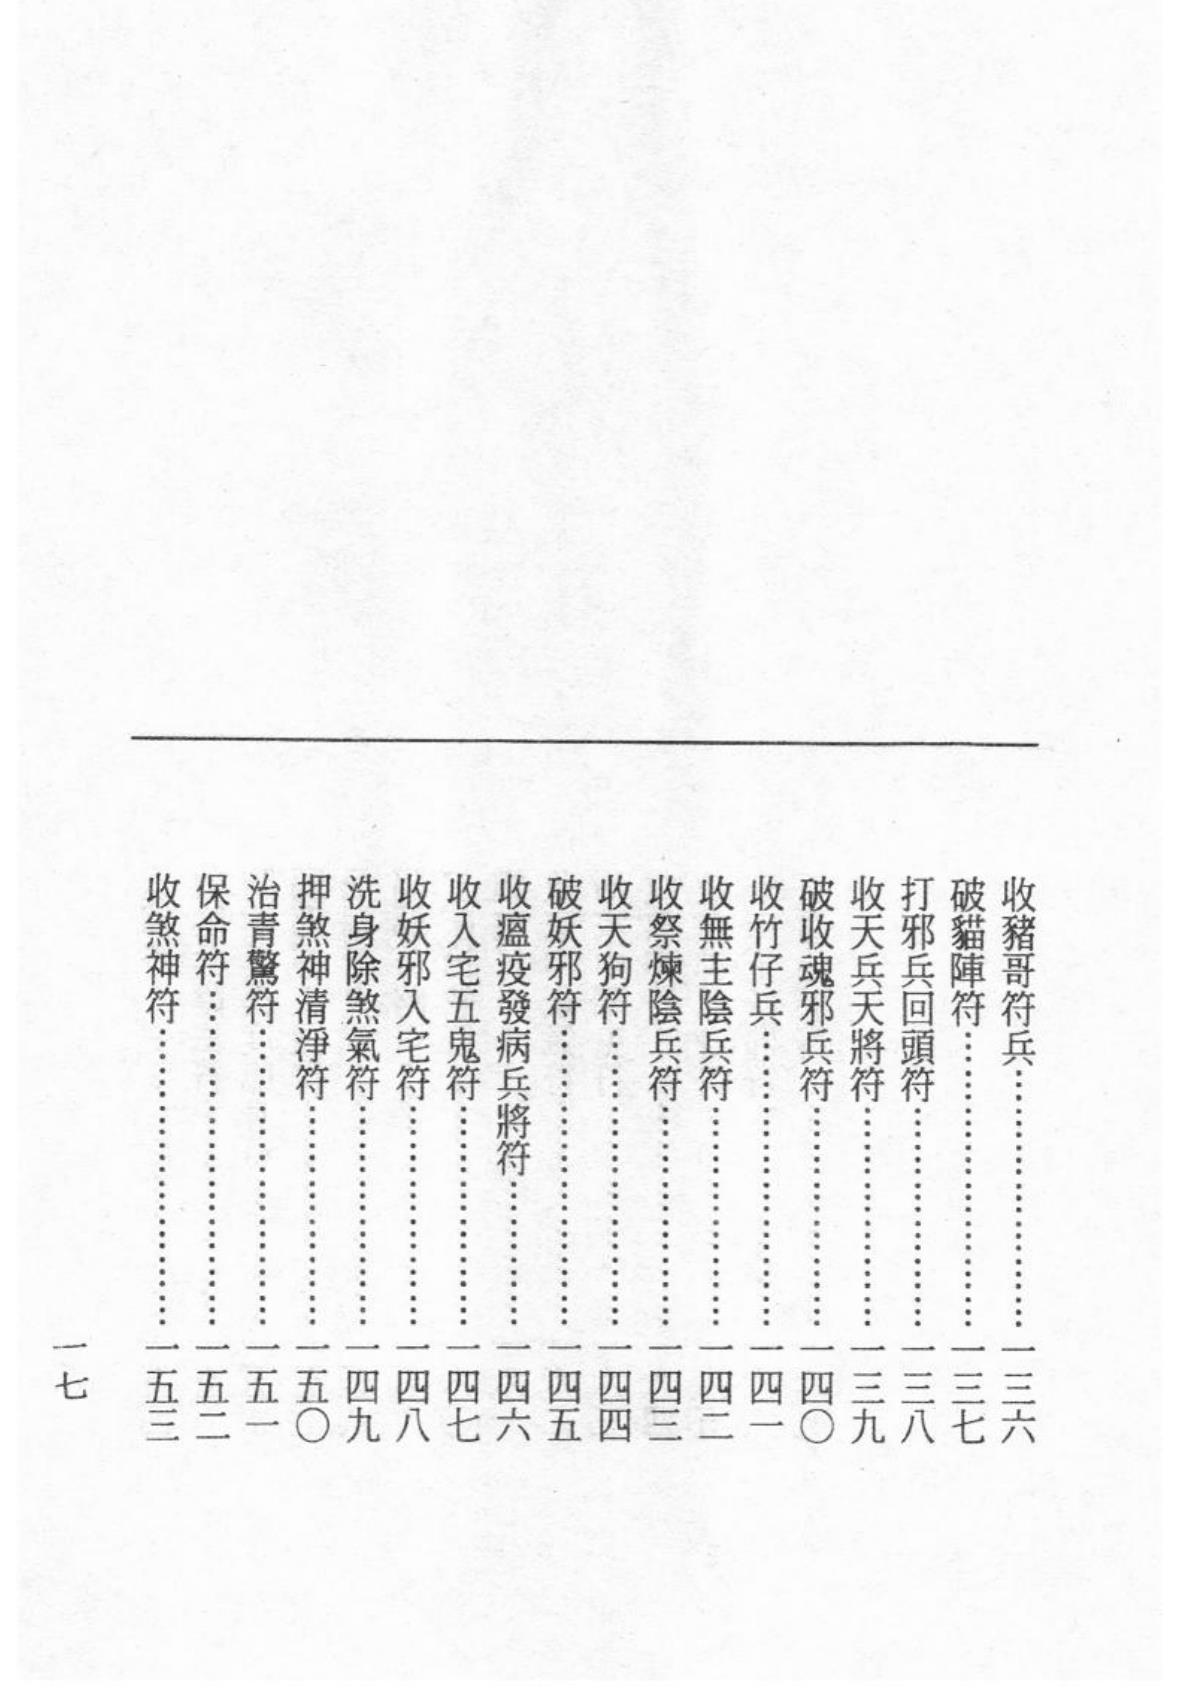 收豬哥符兵……………………一三六
破貓陣符……………………一三七
打邪兵回頭符……………………一三八
收天兵天將符……………………一三九
破收魂邪兵符……………………一四〇
收竹仔兵……………………一四一
收無主陰兵符……………………一四二
收祭煉陰兵符……………………一四三
收天狗符……………………一四四
破妖邪符……………………一四五
收瘟疫發病兵將符……………………一四六
收入宅五鬼符……………………一四七
收妖邪入宅符……………………一四八
洗身除煞氣符……………………一四九
押煞神清淨符……………………一五〇
治青驚符……………………一五一
保命符……………………一五二
收煞神符……………………一五三
一七